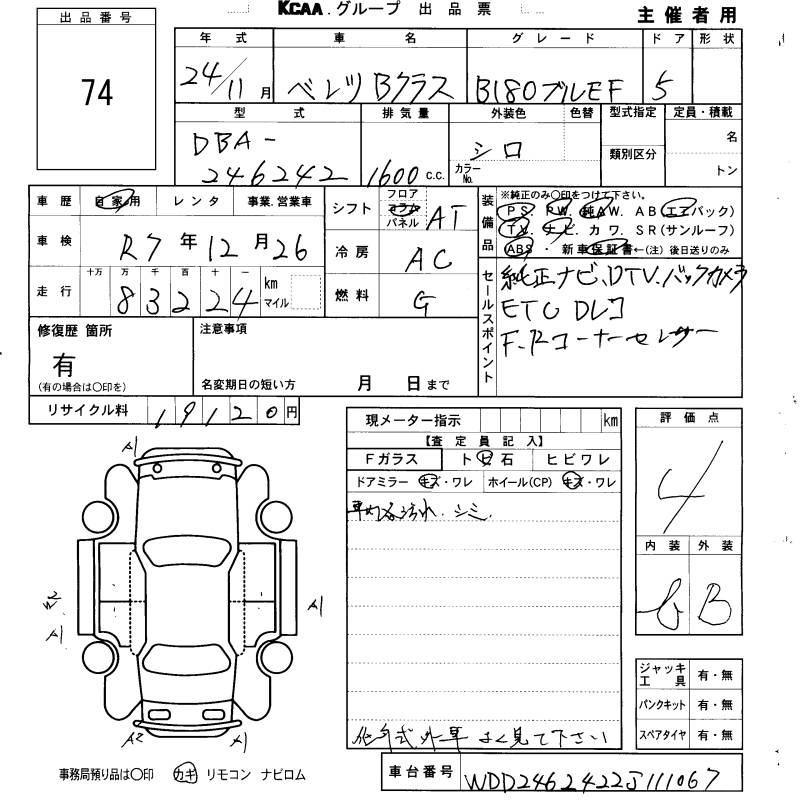 KCAA.グループ 出品票
主催者用
出品番号
74
年式 車名 グレード ドア 形状
24/11月 ベンツ Bクラス B180ブルEF 5
型式 排気量 外装色 色替 型式指定 定員・積載
DBA-
246242 1600 c.c. シロ カラーNo. 類別区分 名
トン
車歴 自家用 レンタ 事業.営業車
シフト フロア コラム パネル AT
車検 R7年12月26
冷房 AC
走行 十万 万 千 百 十 一
83224 km マイル
燃料 G
装備品 ※純正のみ〇印をつけて下さい。
PS. PW. 純AW. AB(エアバック)
TV. ナビ. カワ. SR(サンルーフ)
ABS ・ 新車保証書←(注) 後日送りのみ
セールスポイント
純正ナビ、DTV、バックカメラ
ETC Dレコ
F.Rコーナーセンサー
修復歴 箇所 注意事項
有
(有の場合は〇印を) 名変期日の短い方 月 日まで
リサイクル料 19120円
現メーター指示 km
【査定員記入】
Fガラス ト ビ 石 ヒビワレ
ドアミラー キズ・ワレ ホイール(CP) キズ・ワレ
車内 汚れ、シミ
評価点
4
内装 外装
B
A1
W2
A1
A1
A2 A1
ジャッキ工具 有・無
パンクキット 有・無
スペアタイヤ 有・無
よく見て下さい
事務局預り品は〇印 カギ リモコン ナビロム
車台番号 WDD2462422J111067